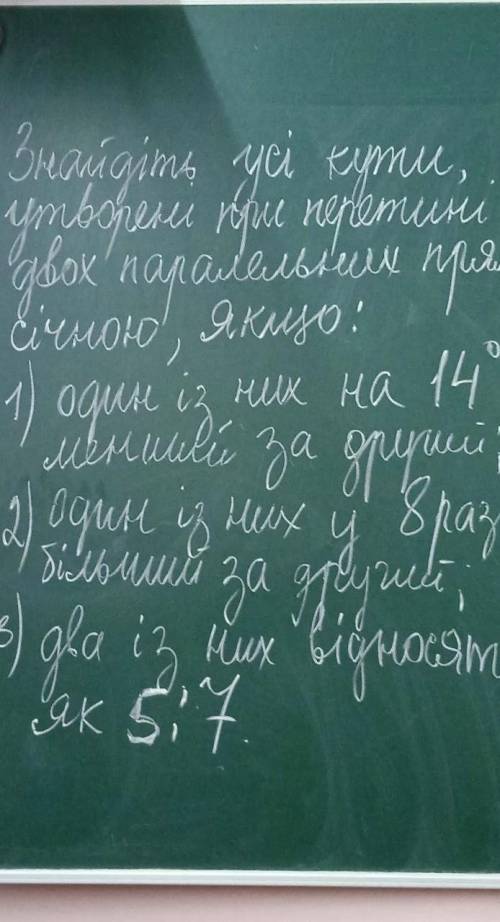 Знайдіть усі кути,
утворені при перетині
двох паралельних
січною, якщо:
1) один із них на 14°
менший за другий;
2) один із них у 8 раз
більший за другий;
3) два із них відносят
як 5:7.